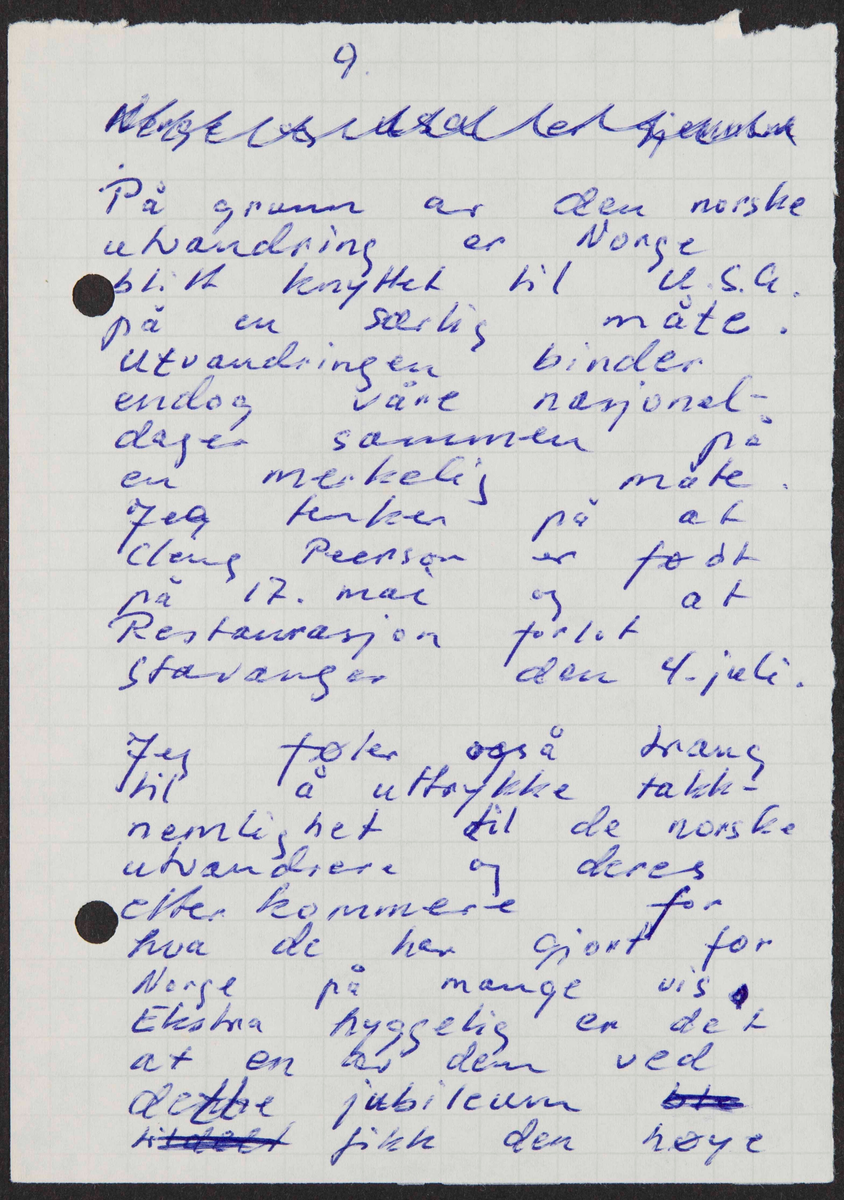 9.
På grunn av den norske
utvandring er Norge
blitt knyttet til U.S.A.
på en særlig måte.
Utvandringen binder
endog våre nasjonal-
dager sammen på
en merkelig måte.
Jeg tenker på at
Cleng Peerson er født
på 17. mai og at
Restaurasjon forlot
Stavanger den 4. juli.
Jeg føler også trang
til å uttrykke takk-
nemlighet til de norske
utvandrere og deres
etterkommere for
hva de har gjort for
Norge på mange vis.
Ekstra hyggelig er det
at en av dem ved
dette jubileum ble
tildelt fikk den høye